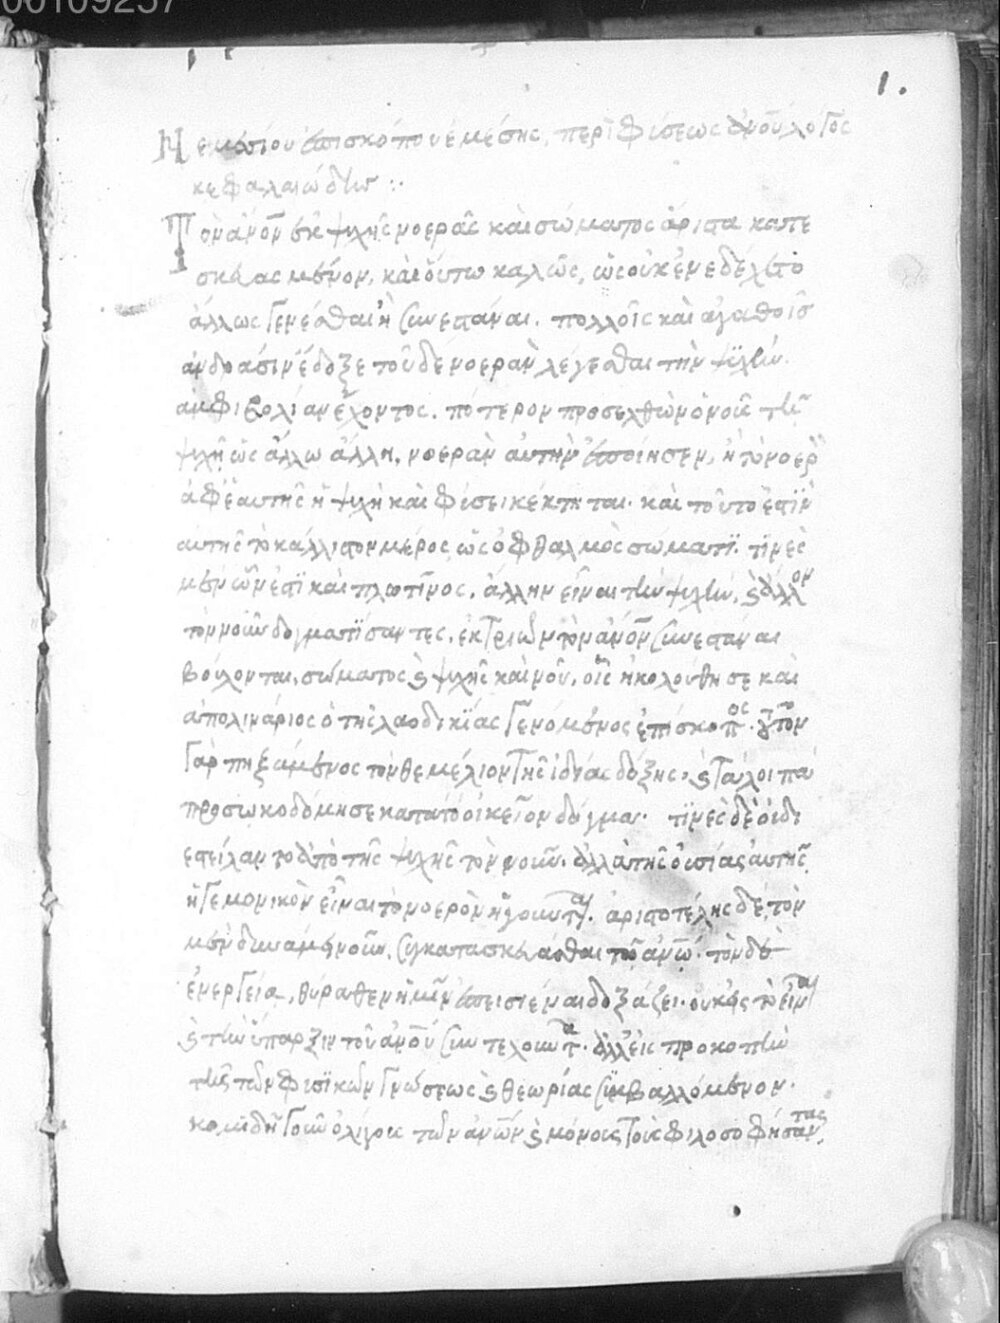 00109257
1.
Νεμεσίου ἐπισκόπου ἐμέσης, περὶ φύσεως ἀνοῦ λόγος
κεφαλαιώδης :·
Τὸν ἀνον ἐκ ψυχῆς νοερᾶς καὶ σώματος ἄριστα κατε
σκευασμένον, καὶ οὕτω καλῶς, ὡς οὐκ ἐνεδέχετο
ἄλλως γενέσθαι ἢ συνεστάναι. πολλοῖς καὶ ἀγαθοῖς
ἀνδράσιν ἔδοξε τοῦ δὲ νοερὰν λέγεσθαι τὴν ψυχὴν
ἀμφιβολίαν ἔχοντος. πότερον προσελθὼν ὁ νοῦς τῇ
ψυχῇ ὡς ἄλλω ἄλλη, νοερὰν αὐτὴν ἐποίησεν, ἢ τὸ νοερὸν
ἀφ' ἑαυτῆς ἡ ψυχὴ καὶ φύσει κέκτηται. καὶ τοῦτο ἐστὶν
αὐτῆς τὸ κάλλιστον μέρος, ὡς ὀφθαλμὸς σώματι. τινὲς
μὲν ὧν ἐστὶ καὶ πλωτῖνος, ἄλλην εἶναι τὴν ψυχὴν, καὶ ἄλλον
τὸν νοῦν δογματίσαντες, ἐκ τριῶν τὸν ἀνον συνεστάναι
βούλονται, σώματος καὶ ψυχῆς καὶ νοῦ, οἷς ἠκολούθησε καὶ
ἀπολινάριος ὁ τῆς λαοδικίας γενόμενος ἐπίσκοπος. τοῦτον
γὰρ πηξάμενος τὸν θεμέλιον τῆς ἰδίας δόξης, καὶ τὰ λοιπὰ
προσωκοδόμησε κατὰ τὸ οἰκεῖον δόγμα. τινὲς δὲ οὐ δι
εστείλαν το ἀπὸ τῆς ψυχῆς τὸν νοῦν. ἀλλὰ τῆς οὐσίας αὐτῆς
ἡγεμονικὸν εἶναι τὸ νοερὸν ἡγοῦνται. ἀριστοτέλης δὲ, τὸν
μὲν δυνάμει νοῦν, συγκατασκευάσθαι τῶ ἀνω. τὸν δὲ
ἐνεργεία, θύραθεν ἡμῖν ἐπεισιέναι δοξάζει. οὐκ εἰς τὸ εἶναι
καὶ τὴν ὕπαρξιν τοῦ ἀνου συντελοῦντα. ἀλλ' εἰς προκοπὴν
τῆς τῶν φυσικῶν γνώσεως καὶ θεωρίας συμβαλλόμενον.
κομιδῇ γοῦν ὀλίγους τῶν ἀνων καὶ μόνους τοὺς φιλοσοφήσαντας